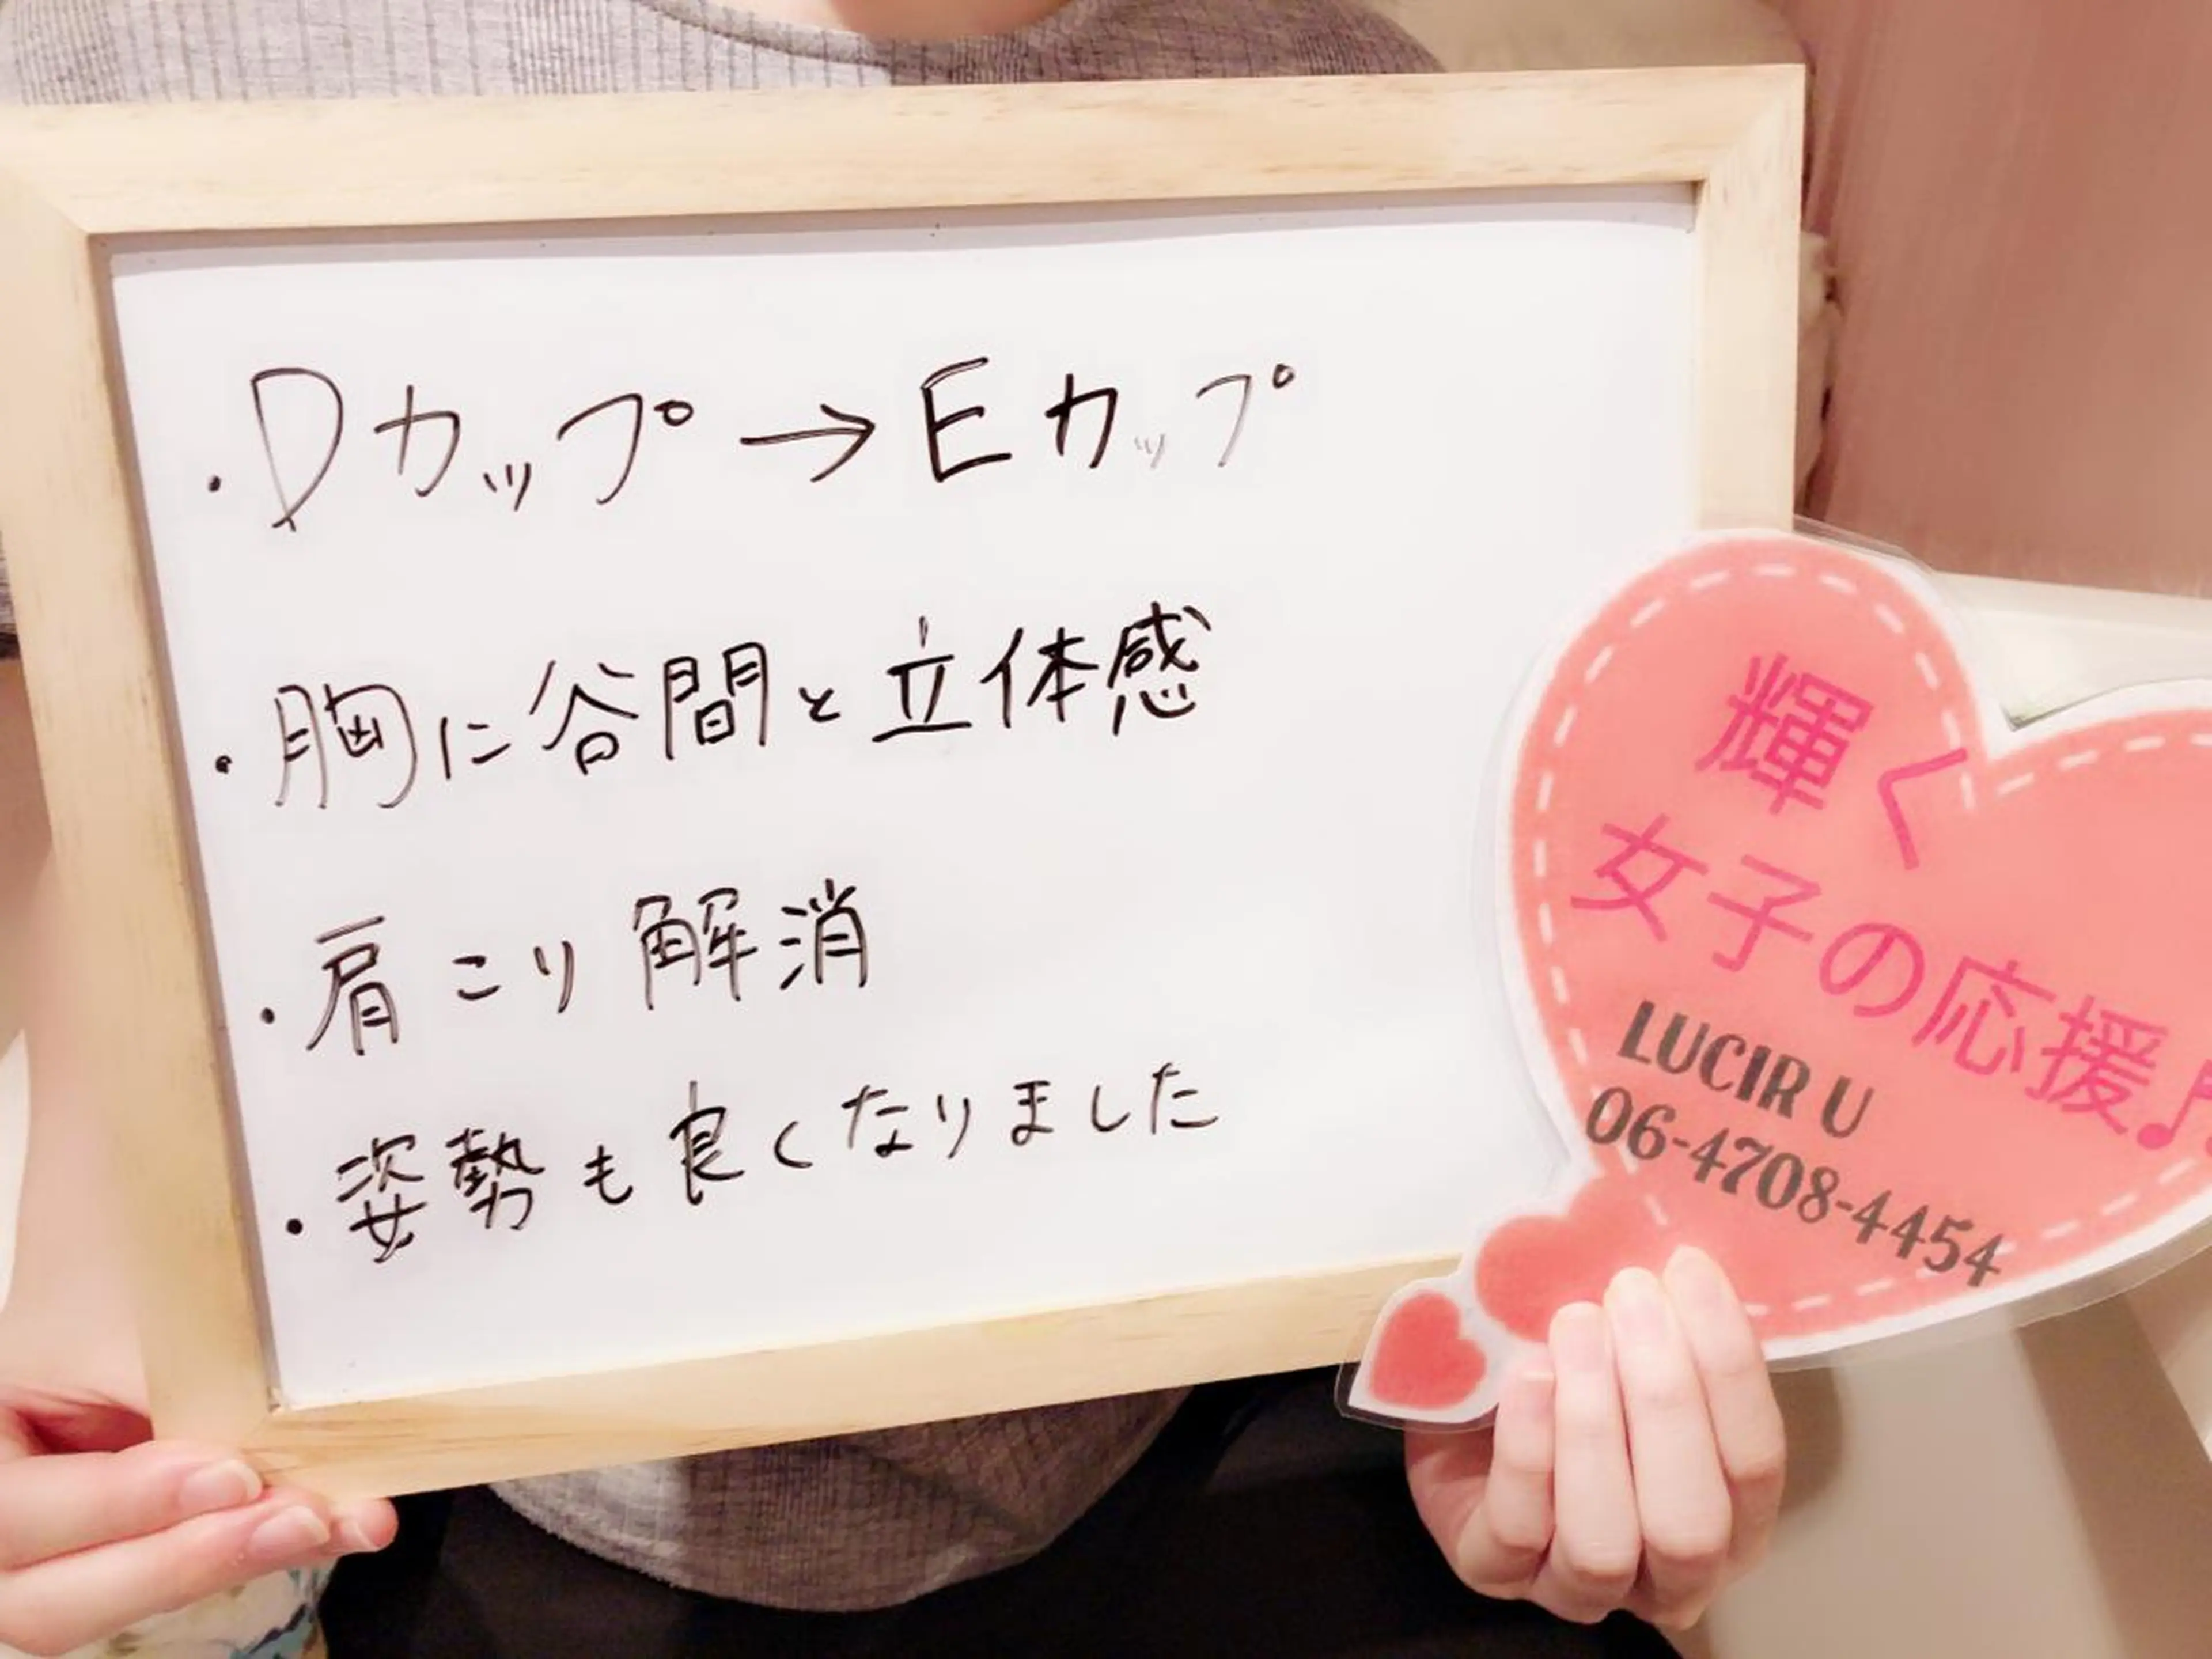 ・Dカップ→Eカップ
・胸に谷間と立体感
・肩こり解消
・姿勢も良くなりました
輝く
女子の応援♪
LUCIR U
06-4708-4454